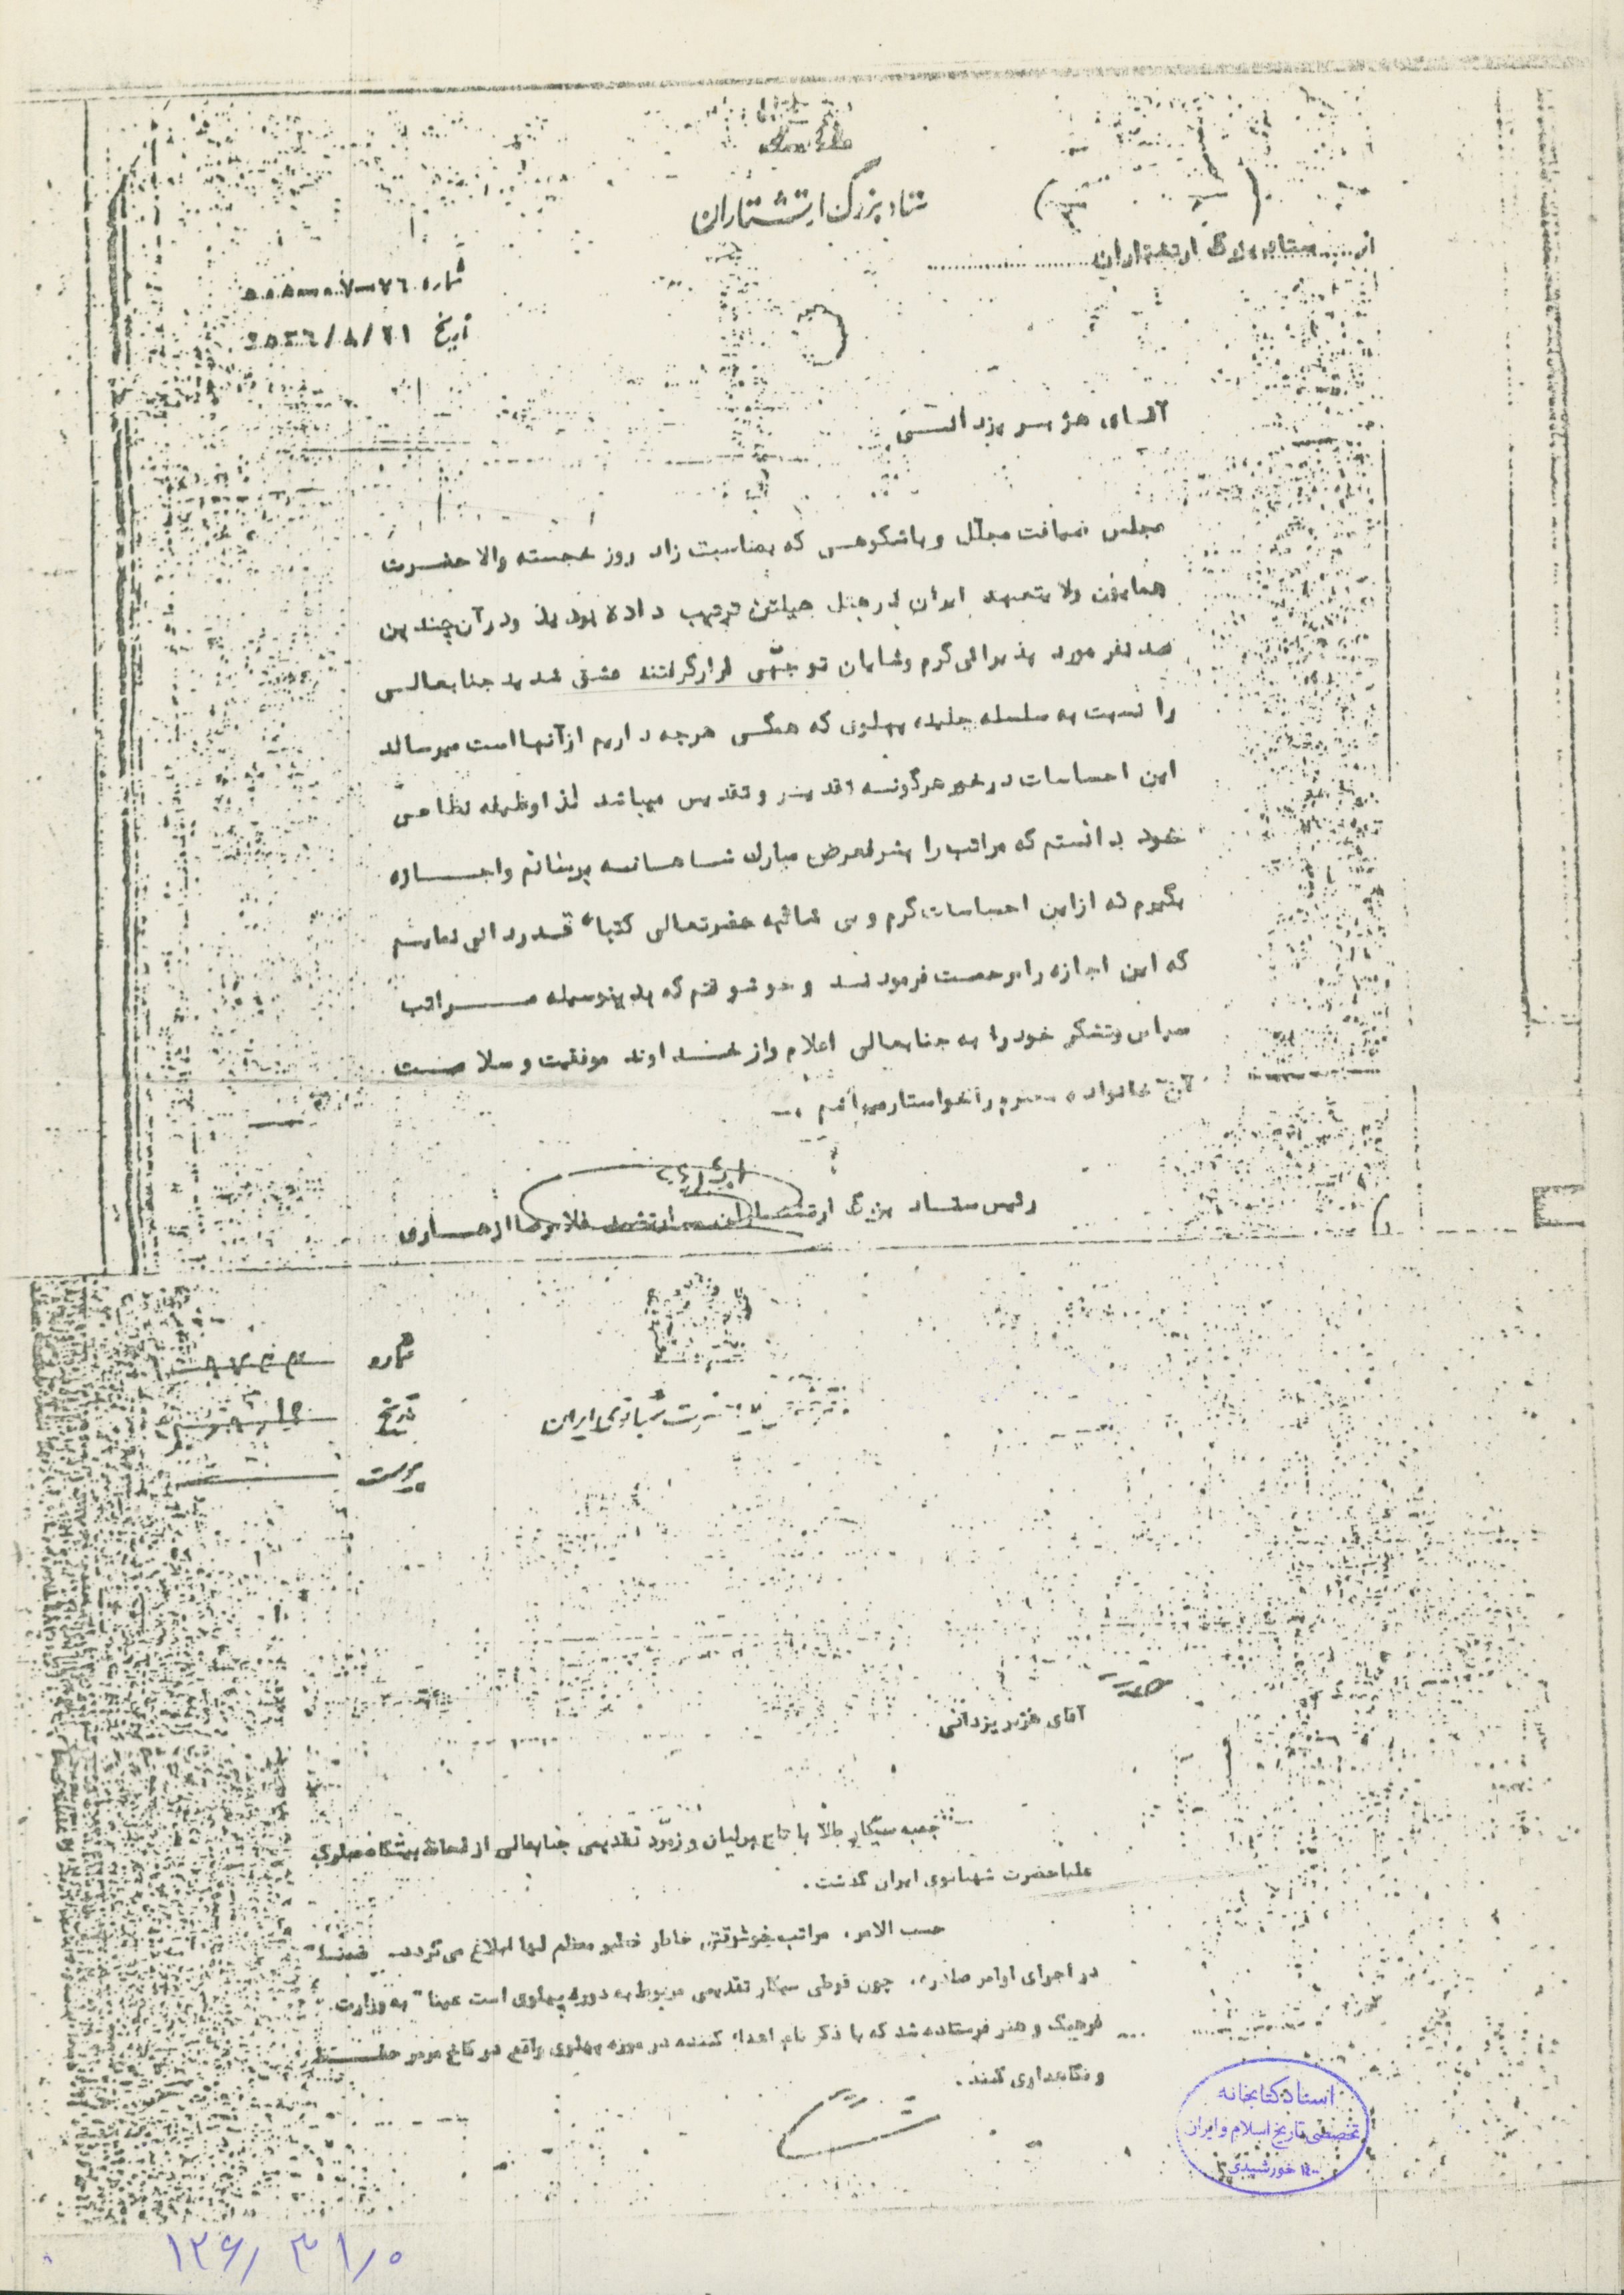 ستاد بزرگ ارتشتاران
از ..... ستاد بزرگ ارتشتاران
شماره
تاریخ ۲۵۳٦/۸/۲۱
آقای هژبر یزدانی
مجلس ضیافت مجلل و باشکوهی که بمناسبت زاد روز خجسته والا حضرت
همایون ولایتعهد ایران در هتل هیلتن ترتیب داده بودید ودر آن چندین
صد نفر مورد پذیرائی گرم وشایان توجهی قرارگرفتند عشق شدید جنابعالی
را نسبت به سلسله جلیله پهلوی که همگی هرچه داریم ازآنها است میرساند
این احساسات درخور هرگونه تقدیر و تقدیس میباشد لذا وظیفه نظامی
خود دانستم که مراتب را بشرفعرض مبارک شاهانه برسانم واجازه
بگیرم که ازاین احساسات گرم و بی شائبه حضرتعالی کتبا" قدردانی نمایم
که این اجازه را مرحمت فرمودند و خوشوقتم که بدینوسیله مراتب
سپاس وتشکر خود را به جنابعالی اعلام واز خداوند موفقیت و سلامت
آن خانواده محترم راخواستارمیباشم .-
رئیس ستاد بزرگ ارتشتاران - ارتشبد غلامرضا ازهاری
شماره
تاریخ
پیوست
شهبانوی ایران
آقای هژبر یزدانی
جعبه سیگار طلا با تاج برلیان و زمرد تقدیمی جنابعالی از لحاظ پیشگاه مبارک
علیاحضرت شهبانوی ایران گذشت .
حسب الامر، مراتب خوشوقتی خاطر خطیر معظم لها ابلاغ می گردد. ضمنا"
در اجرای اوامر صادره، چون قوطی سیگار تقدیمی مربوط به دوره پهلوی است عینا" به وزارت
فرهنگ و هنر فرستاده شد که با ذکر نام اهداء کننده در موزه پهلوی واقع در کاخ مرمر حفظ
و نگاهداری کنند .
اسناد کتابخانه
تخصصی تاریخ اسلام و ایران
خورشیدی
۱۳۶/ ۳۱/۰